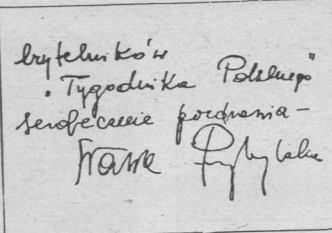 Czytelników
"Tygodnika Polskiego"
serdecznie pozdrawia –